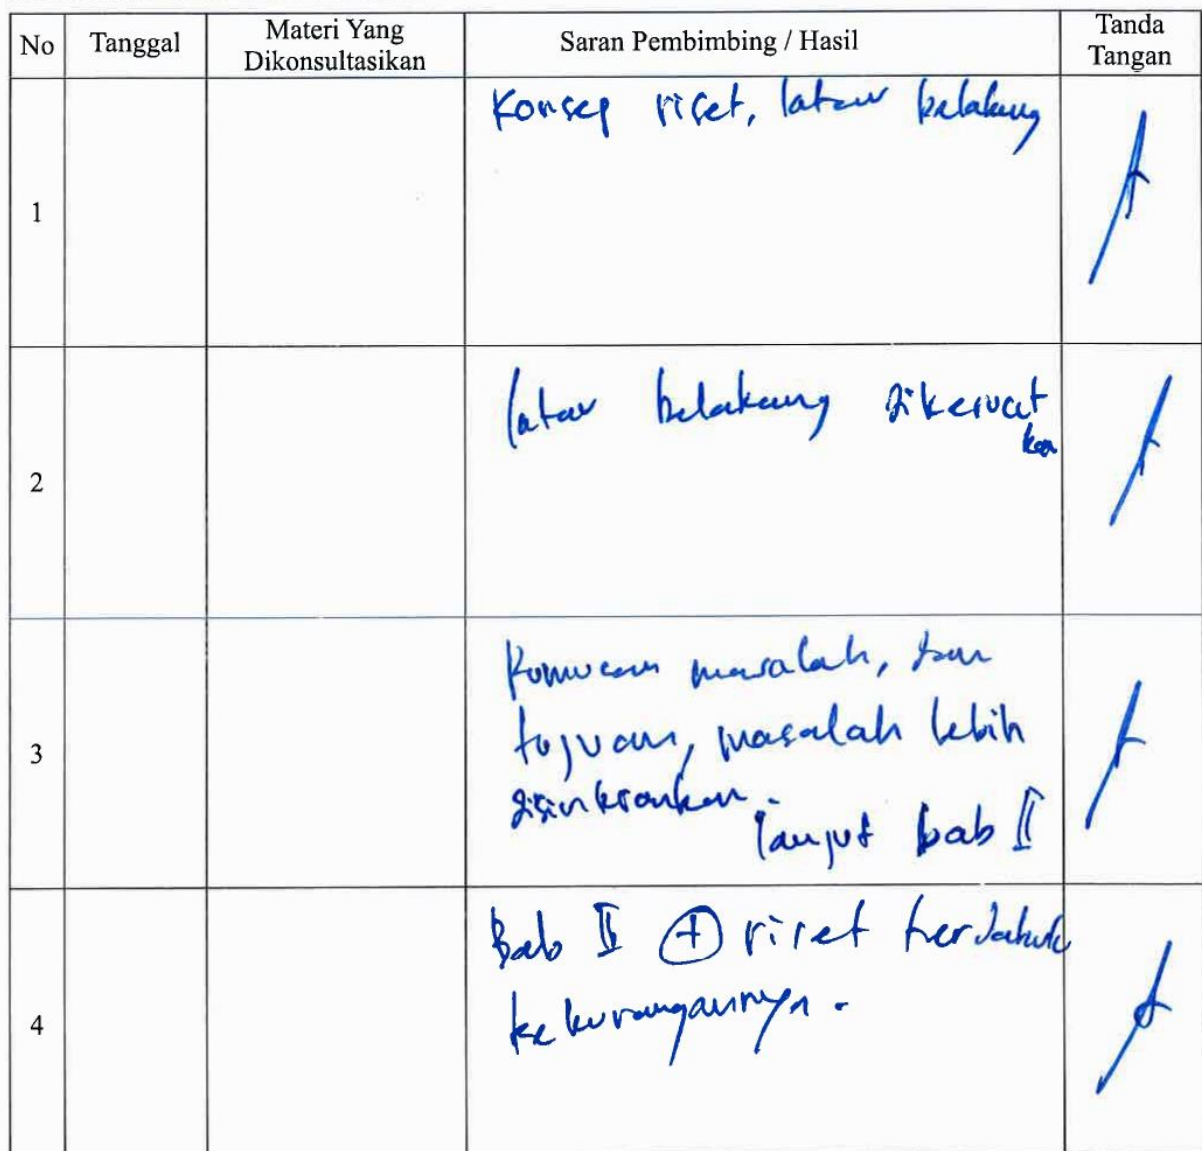 No Tanggal Materi Yang Dikonsultasikan Saran Pembimbing / Hasil Tanda Tangan
1 Konsep riset, latar belakang
2 latar belakang dikeruat
kan
3 Rumusan masalah, dan
tujuan, masalah lebih
disinkronkan.
lanjut bab II
4 Bab II + riset terdahulu
kekurangannya.